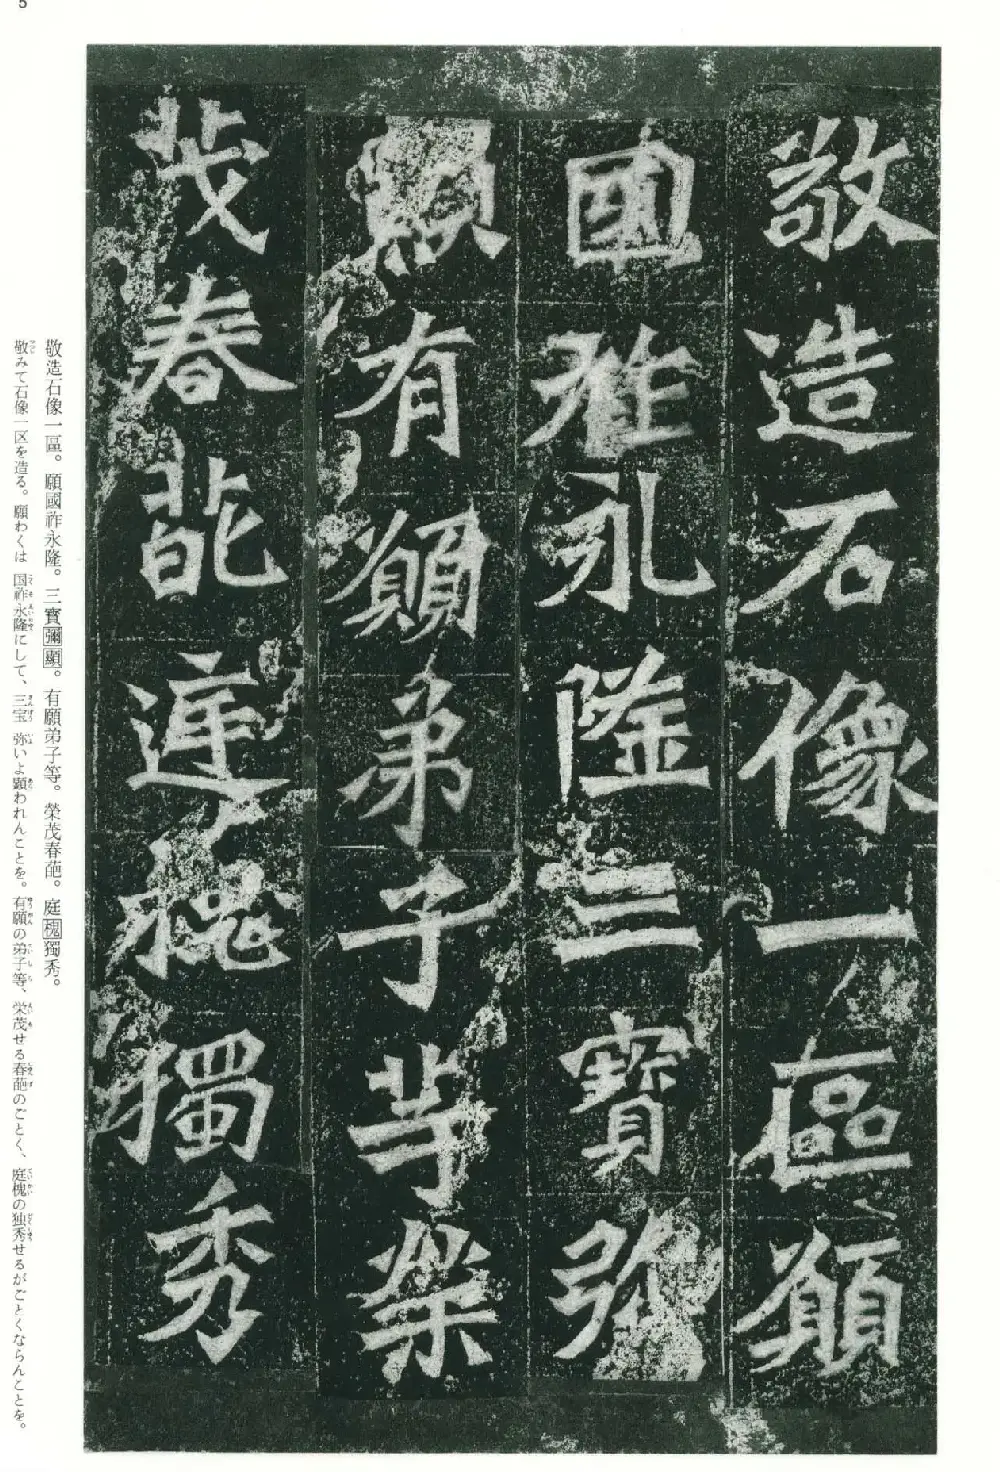 5
敬造石像一區願
國祚永隆三寶彌
顯有願弟子等榮
茂春葩庭槐獨秀
敬造石像一區。願國祚永隆。三寶彌顯。有願弟子等。榮茂春葩。庭槐獨秀。
敬みて石像一区を造る。願わくは 国祚永隆にして、三宝 弥いよ顕われんことを。有願の弟子等、栄茂せる春葩のごとく、庭槐の独秀せるがごとくならんことを。